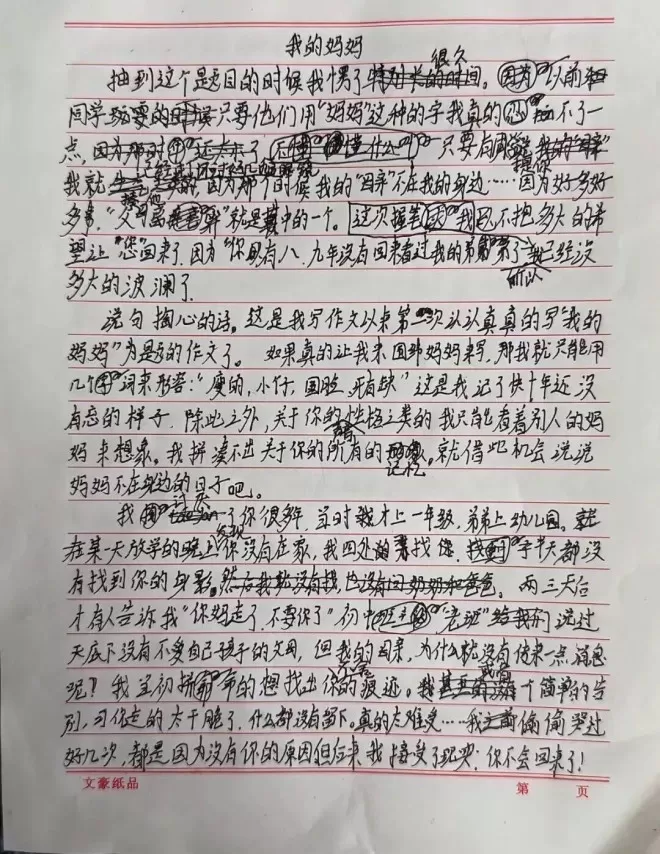 我的妈妈
很久
抽到这个题目的时候我愣了。因为以前
同学只要他们用“妈妈”这种的字我真的忍不了一
点,因为那时还 只要有同学
我就,因为那个时候我的“母亲”不在我的身边……因为好多好
多事,“父母离异”就是其中的一个。这次提笔我已不抱多大的希
望让“您”回来了,因为“你”已有八、九年没有回来看过我的弟弟了,我已经没
所以
多大的波澜了
说句掏心的话。这是我写作文以来第一次认认真真的写“我的
妈妈”为题的作文了。如果真的让我来回妈妈来写,那我就只能用
几个词来形容:“瘦的,小个,圆脸,牙有缺”这是我记了快十年还没
有忘的样子,除此之外,关于你的性格之类的我只能看着别人的妈
妈来想象。我拼凑不出关于你的所有的。就借此机会说说
记忆
妈妈不在身边的日子吧。
我了你很多年,当时我才上一年级,弟弟上幼儿园。就
在某一天放学的晚上你没有在家,我四处找你,找了半天都没
有找到你的身影。然后我就没有找,也没有问奶奶和爸爸。两三天后
才有人告诉我“你妈走了,不要你了”初中“老班”给我们说过
天底下没有不爱自己孩子的父母,但我的母亲,为什么就没有传来一点消息
呢?我当初拼命的想找出你的痕迹。我个简单的告
别,可你走的太干脆了,什么都没有留下。真的太难受……我之前偷偷哭过
好几次,都是因为没有你的原因但后来,我接受了现实:你不会回来了!
文豪纸品
第 页